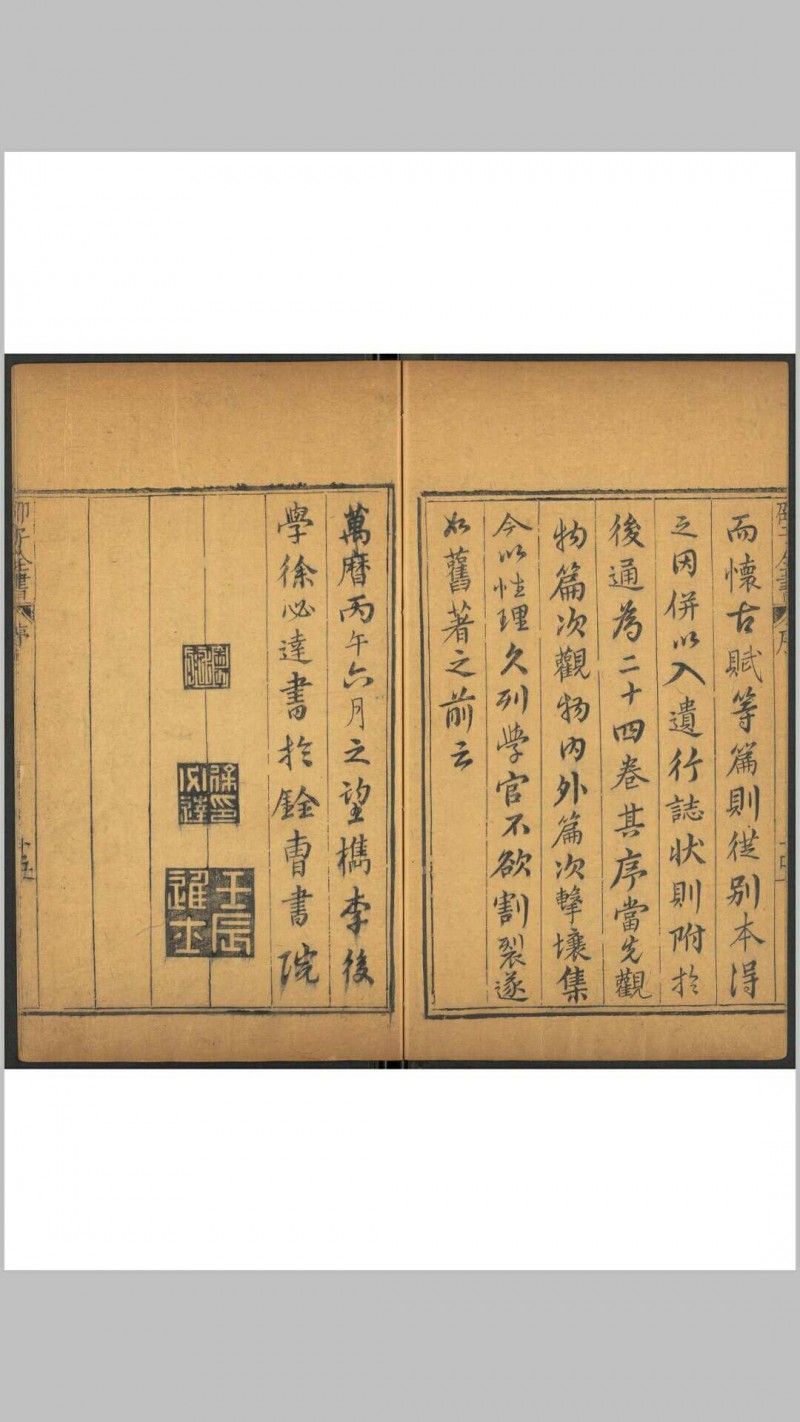 而懷古賦等篇則從别本得
之因併以入遺行誌狀則附於
後通為二十四卷其序當先觀
物篇次觀物內外篇次擊壤集
今以性理久列學官不欲割裂遂
如舊著之前云
萬曆丙午六月之望檇李後
學徐必達書於銓曹書院
徐印必達
壬辰進士
邵子全書 序